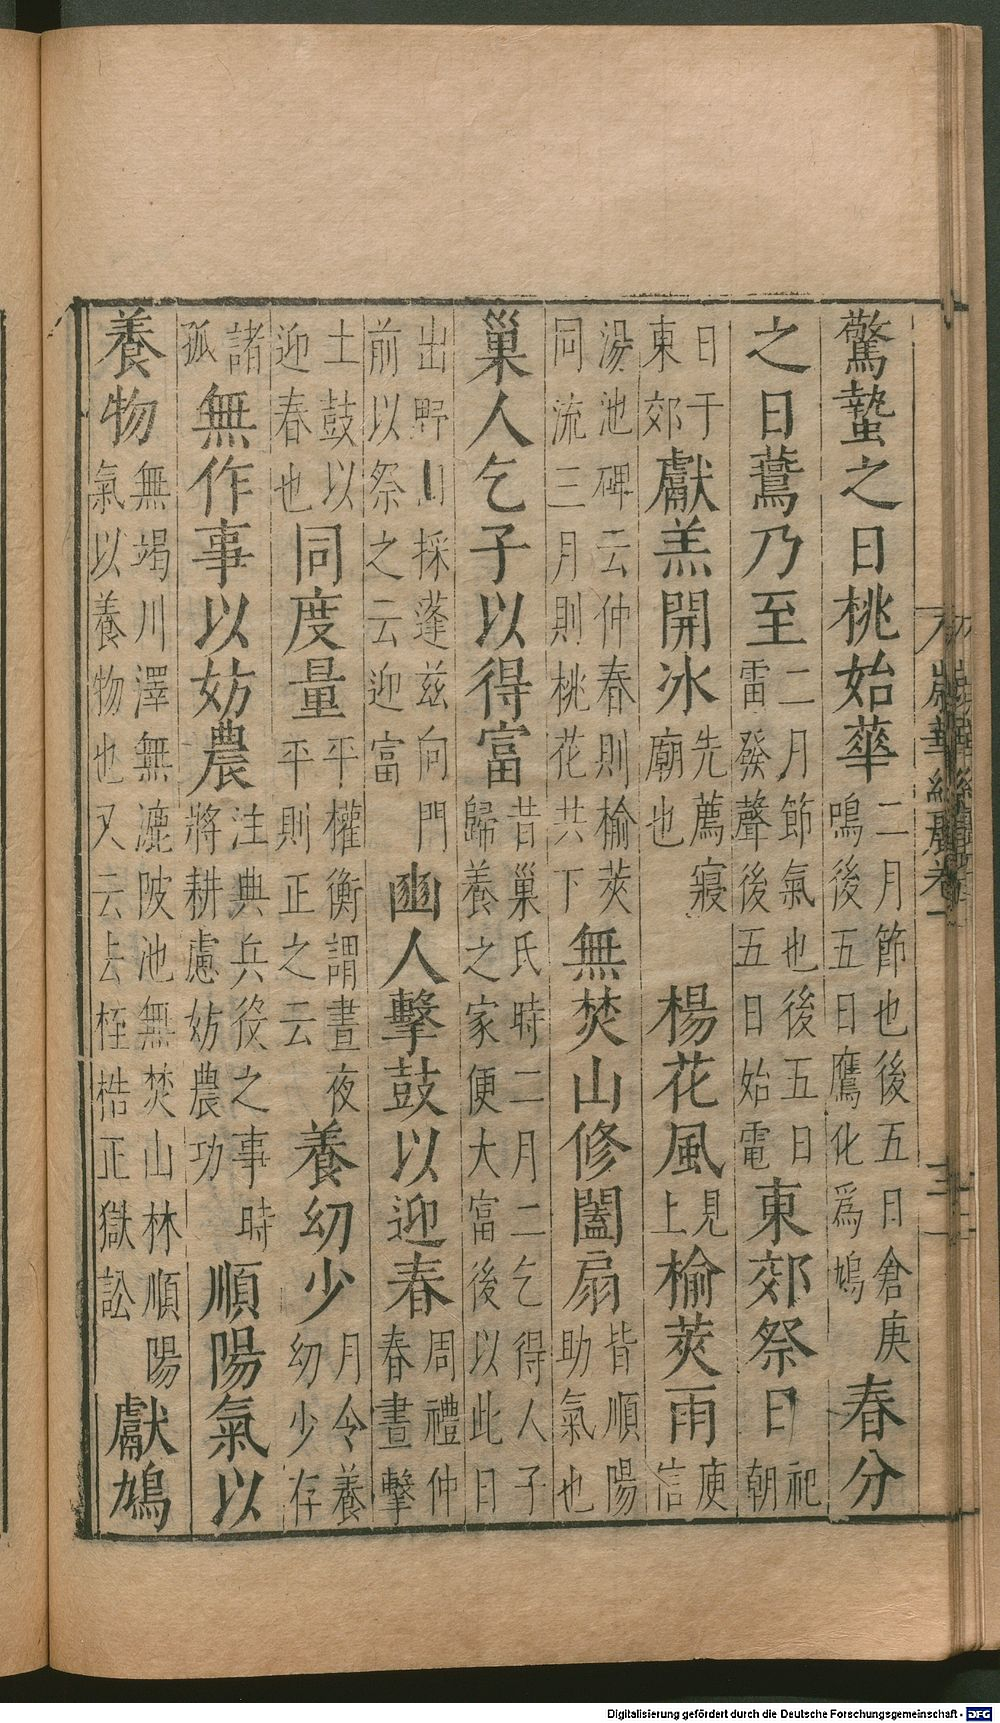 驚蟄之日桃始華二月節也後五日倉庚鳴後五日鷹化爲鳩春分
之日鳦乃至二月節氣也後五日雷發聲後五日始電東郊祭日祀朝
日于東郊獻羔開冰先薦寢廟也楊花風見上榆莢雨庾信
湯池碑云仲春則榆莢同流三月則桃花共下無焚山修闔扇皆順陽助氣也
巢人乞子以得富昔巢氏時二月二乞得人子歸養之家便大富後以此日
出野田採蓬茲向門前以祭之云迎富豳人擊鼓以迎春周禮仲春晝擊
土鼓以迎春也同度量平權衡謂晝夜平則正之云養幼少月令養幼少存
諸孤無作事以妨農注典兵役之事時將耕慮妨農功順陽氣以
養物無竭川澤無漉陂池無焚山林順陽氣以養物也又云去桎梏正獄訟獻鳩
歲華紀麗卷一
三
Digitalisierung gefördert durch die Deutsche Forschungsgemeinschaft - DFG